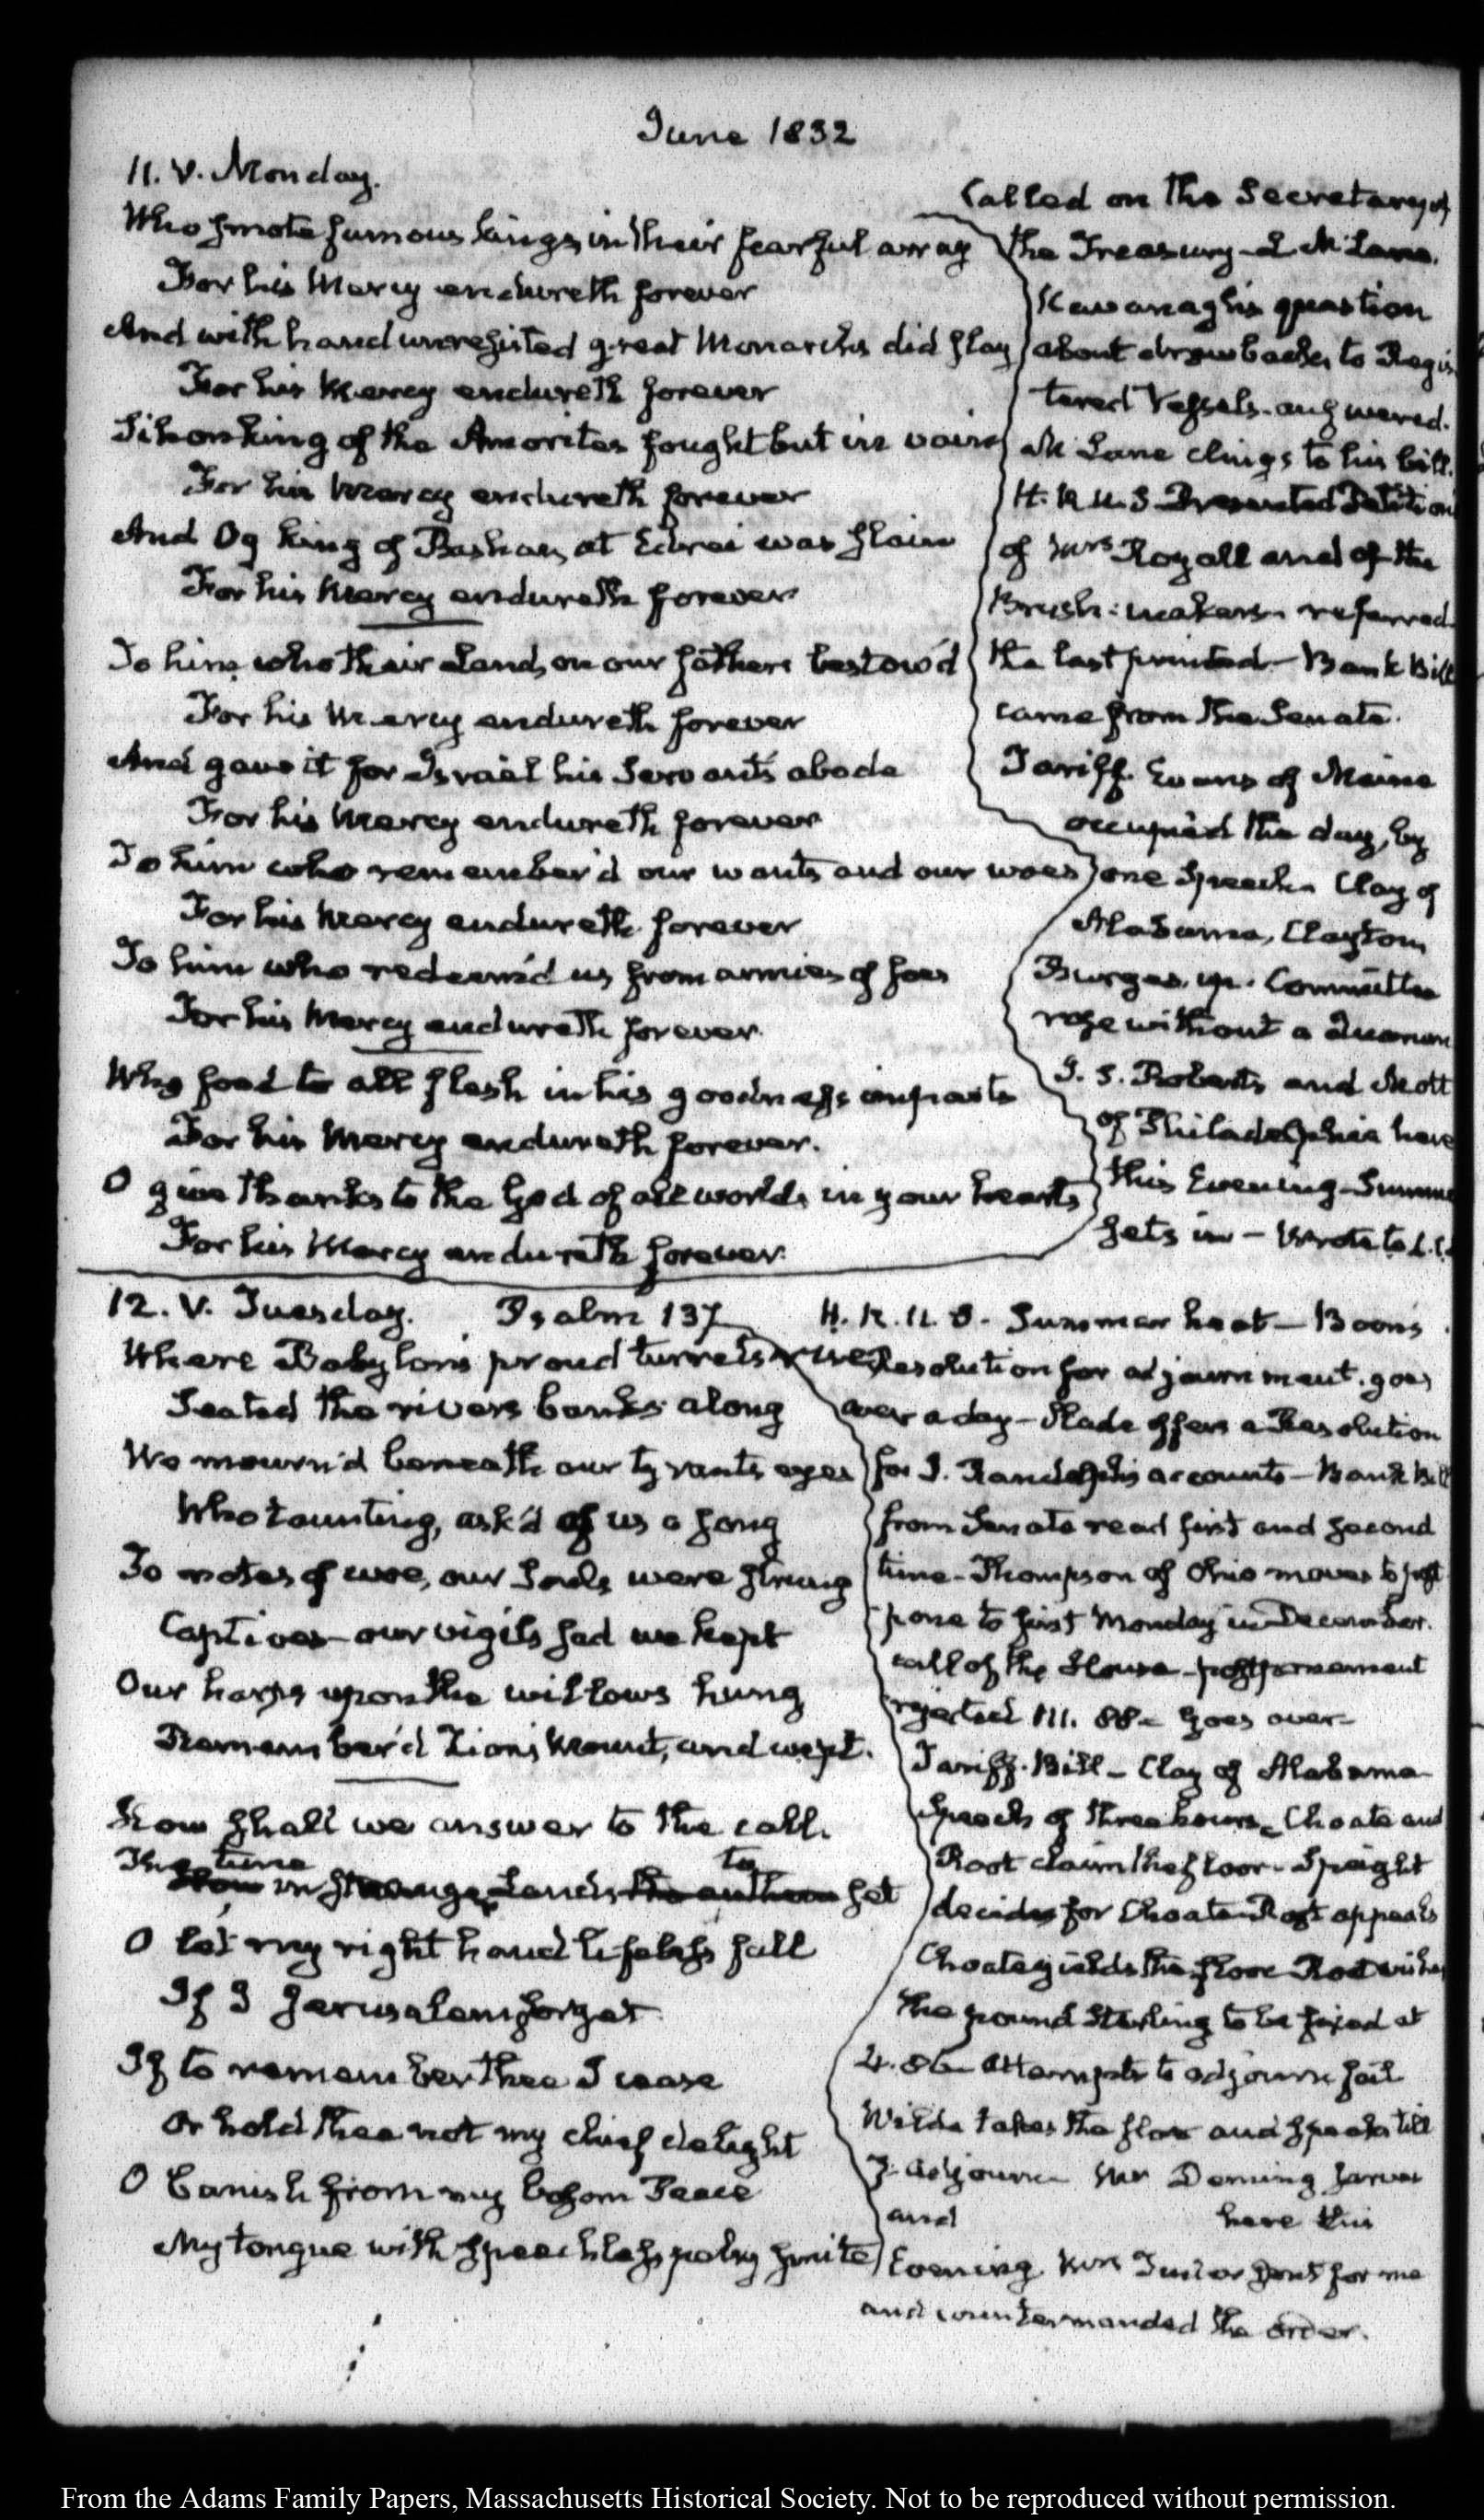 June 1832
11. V. Monday.
Who smote famous kings in their fearful array
For his Mercy endureth forever
And with hand unresisted great Monarchs did slay
For his Mercy endureth forever
Sihon king of the Amorites fought but in vain
For his Mercy endureth forever
And Og king of Bashan, at Edrei was slain
For his Mercy endureth forever
To him, who their Lands, on our fathers bestow'd
For his Mercy endureth forever
And gave it for Israel his Servant's abode
For his Mercy endureth forever
To him who remember'd our wants and our woes
For his Mercy endureth forever
To him who redeem'd us from armies of foes
For his Mercy endureth forever.
Who food to all flesh in his goodness imparts
For his Mercy endureth forever.
O give thanks to the God of all worlds in your hearts
For his Mercy endureth forever.
Called on the Secretary of
the Treasury - L McLane.
Kavanagh's question
about drawbacks to Regis
tered Vessels. answered.
McLane clings to his bill.
H. R. U. S. Presented Petition
of Mrs Royall and of the
Brush-makers. referred.
the last printed - Bank Bill
came from the Senate.
Tariff. Evans of Maine
occupied the day, by
one Speech. Clay of
Alabama, Clayton
Burges. up. Committee
rose without a Quorum
J. S. Roberts and Mott
of Philadelphia here
this Evening - Summer
sets in - Wrote to
12. V. Tuesday. Psalm 137
Where Babylon's proud turrets rise
Seated the rivers banks along
We mourn'd beneath our tyrants eyes
Who taunting, ask'd of us a song
To notes of woe, our Souls were strung
Captives - our vigils sad we kept
Our harps upon the willows hung
Remember'd Zion's Mount, and wept.
How shall we answer to the call.
Thy tune in strange Lands to set
O let my right hand lifeless fall
If I Jerusalem forget
If to remember thee I cease
Or hold thee not my chief delight
O banish from my bosom Peace
My tongue with speechless palsy smite
H. R. U. S. Summer heat - Boon's
Resolution for adjournment. goes
over a day - Slade offers a Resolution
for J. Randolph's accounts - Bank Bill
from Senate read first and second
time - Thompson of Ohio moves to post
pone to first Monday in December.
call of the House - postponement
rejected 111. 88 - goes over -
Tariff. Bill - Clay of Alabama
Speech of three hours - Choate and
Root claim the floor - Speight
decides for Choate - Root appeals
Choate yields the floor - Root wishes
the pound Sterling to be fixed at
4.86 - Attempts to adjourn fail
Wilde takes the floor and speaks till
7. adjourn Mr Deming Jarves
and here this
Evening. sent for me
and countermanded the order.